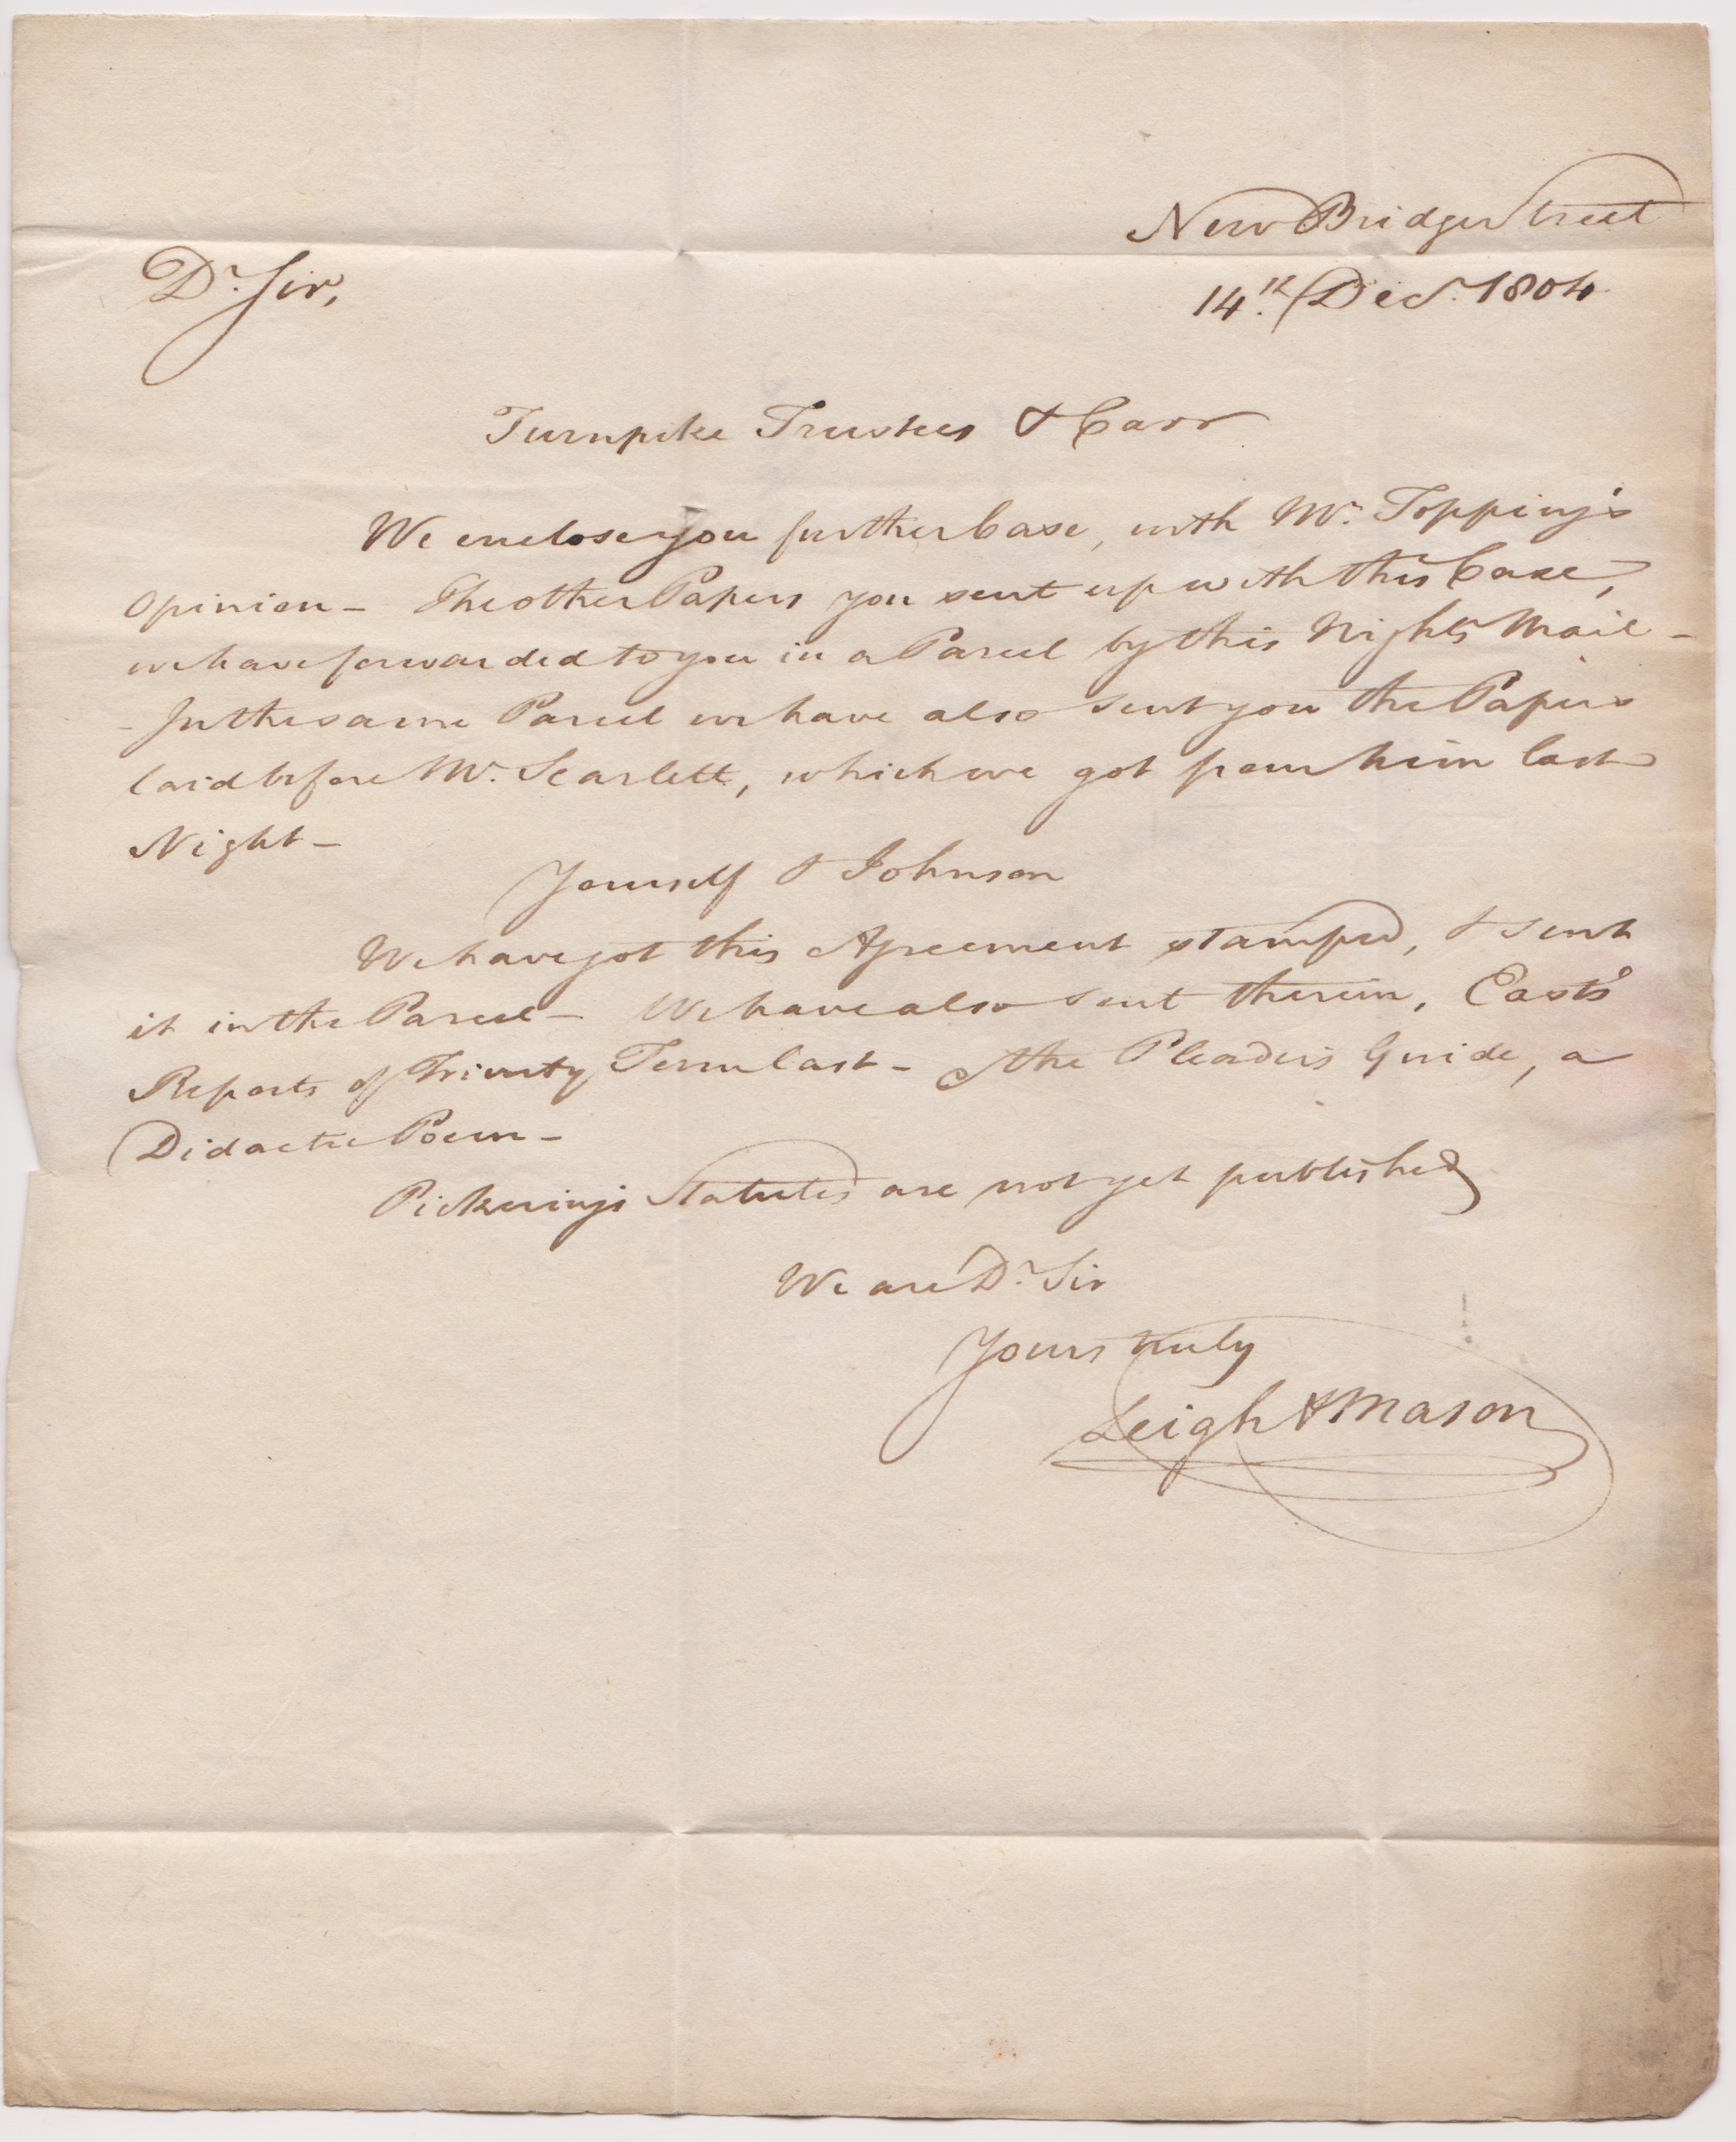 New Bridge Street
14.th Decr. 1804
Dr. Sir,
Turnpike Trustees & Carr
We enclose you further Case, with Mr. Topping's
Opinion - The other Papers you sent up with this Case,
we have forwarded to you in a Parcel by this Night's Mail -
- In the same Parcel we have also sent you the Papers
laid before Mr. Scarlett, which we got from him last
Night -
Yourself & Johnson
We have got this Agreement stamped, & sent
it in the Parcel - We have also sent therein, East's
Reports of Trinity Term last - & the Pleader's Guide, a
Didactic Poem -
Pickering's Statutes are not yet published
We are Dr. Sir
Yours truly
Leigh & Mason